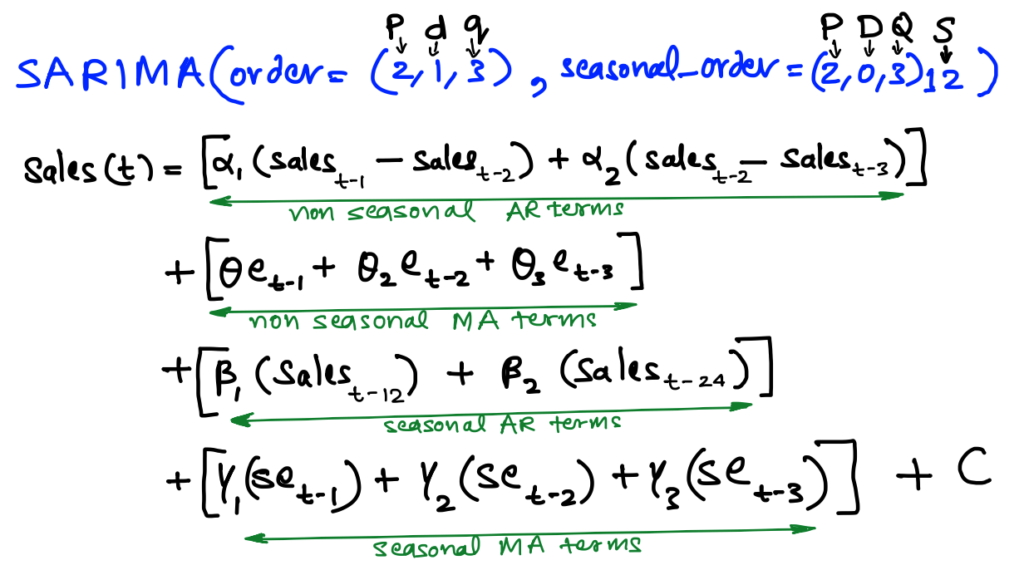 P d q P D Q S
SARIMA(order= (2,1,3), seasonal_order=(2,0,3)12)
Sales(t) = [α₁(Sales_t-1 − Sales_t-2) + α₂(Sales_t-2 − Sales_t-3)]
non seasonal AR terms
+[θe_t-1 + θ₂e_t-2 + θ₃e_t-3]
non seasonal MA terms
+[β₁(Sales_t-12) + β₂(Sales_t-24)]
seasonal AR terms
+[γ₁(se_t-1) + γ₂(se_t-2) + γ₃(se_t-3)] + C
seasonal MA terms